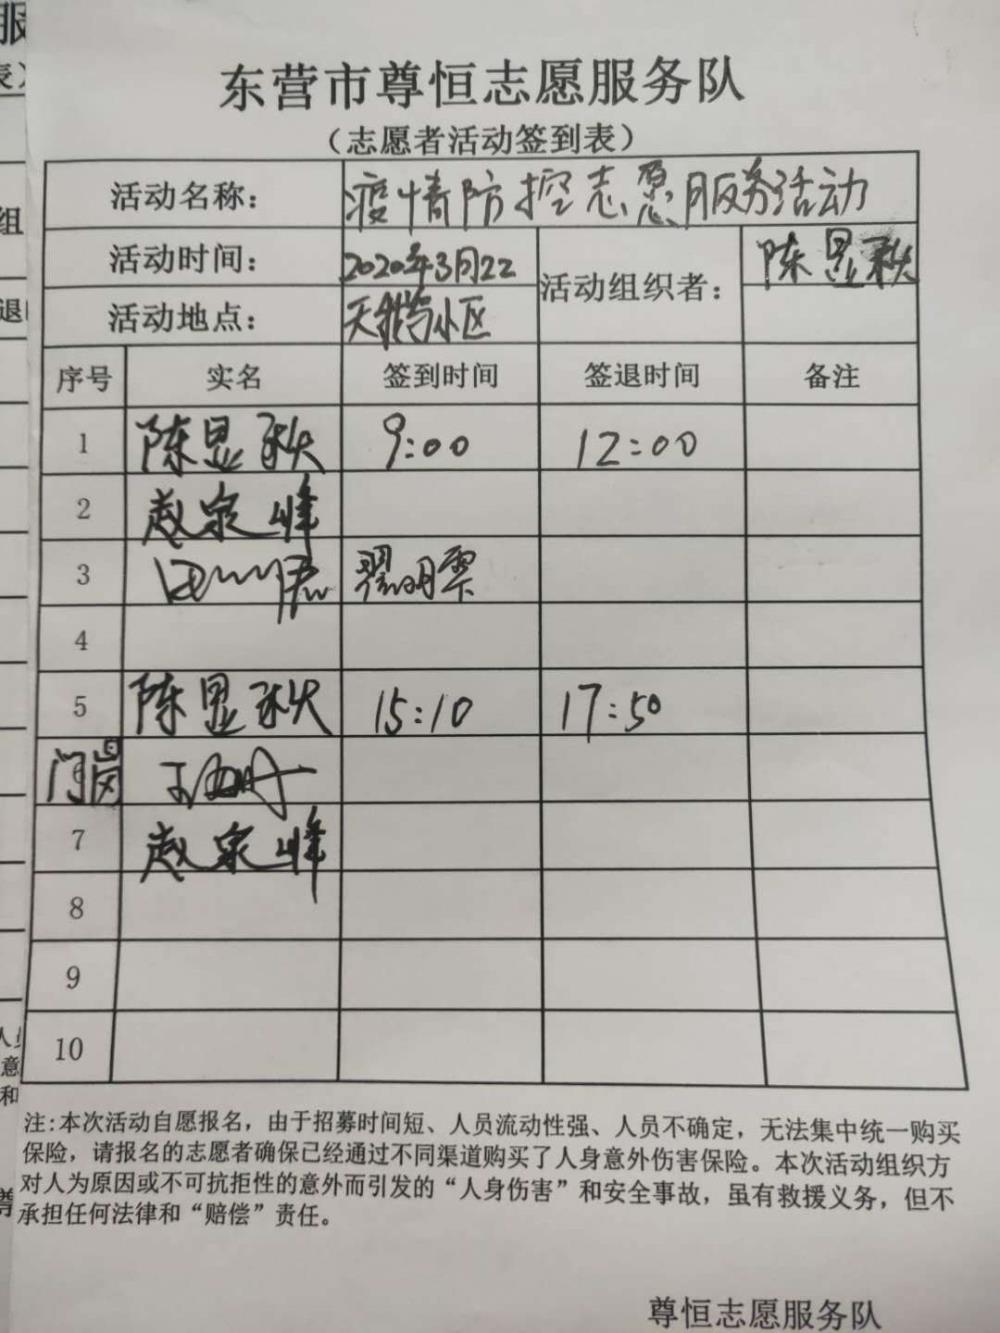 东营市尊恒志愿服务队
（志愿者活动签到表）
活动名称： 疫情防控志愿服务活动
活动时间： 2020年3月22 活动组织者： 陈显秩
活动地点： 天鹅小区
序号 实名 签到时间 签退时间 备注
1 陈显秩 9:00 12:00
2 赵宗峰
3
4
5 陈显秩 15:10 17:50
门岗
7 赵宗峰
8
9
10
注:本次活动自愿报名，由于招募时间短、人员流动性强、人员不确定，无法集中统一购买
保险，请报名的志愿者确保已经通过不同渠道购买了人身意外伤害保险。本次活动组织方
对人为原因或不可抗拒性的意外而引发的“人身伤害”和安全事故，虽有救援义务，但不
承担任何法律和“赔偿”责任。
尊恒志愿服务队